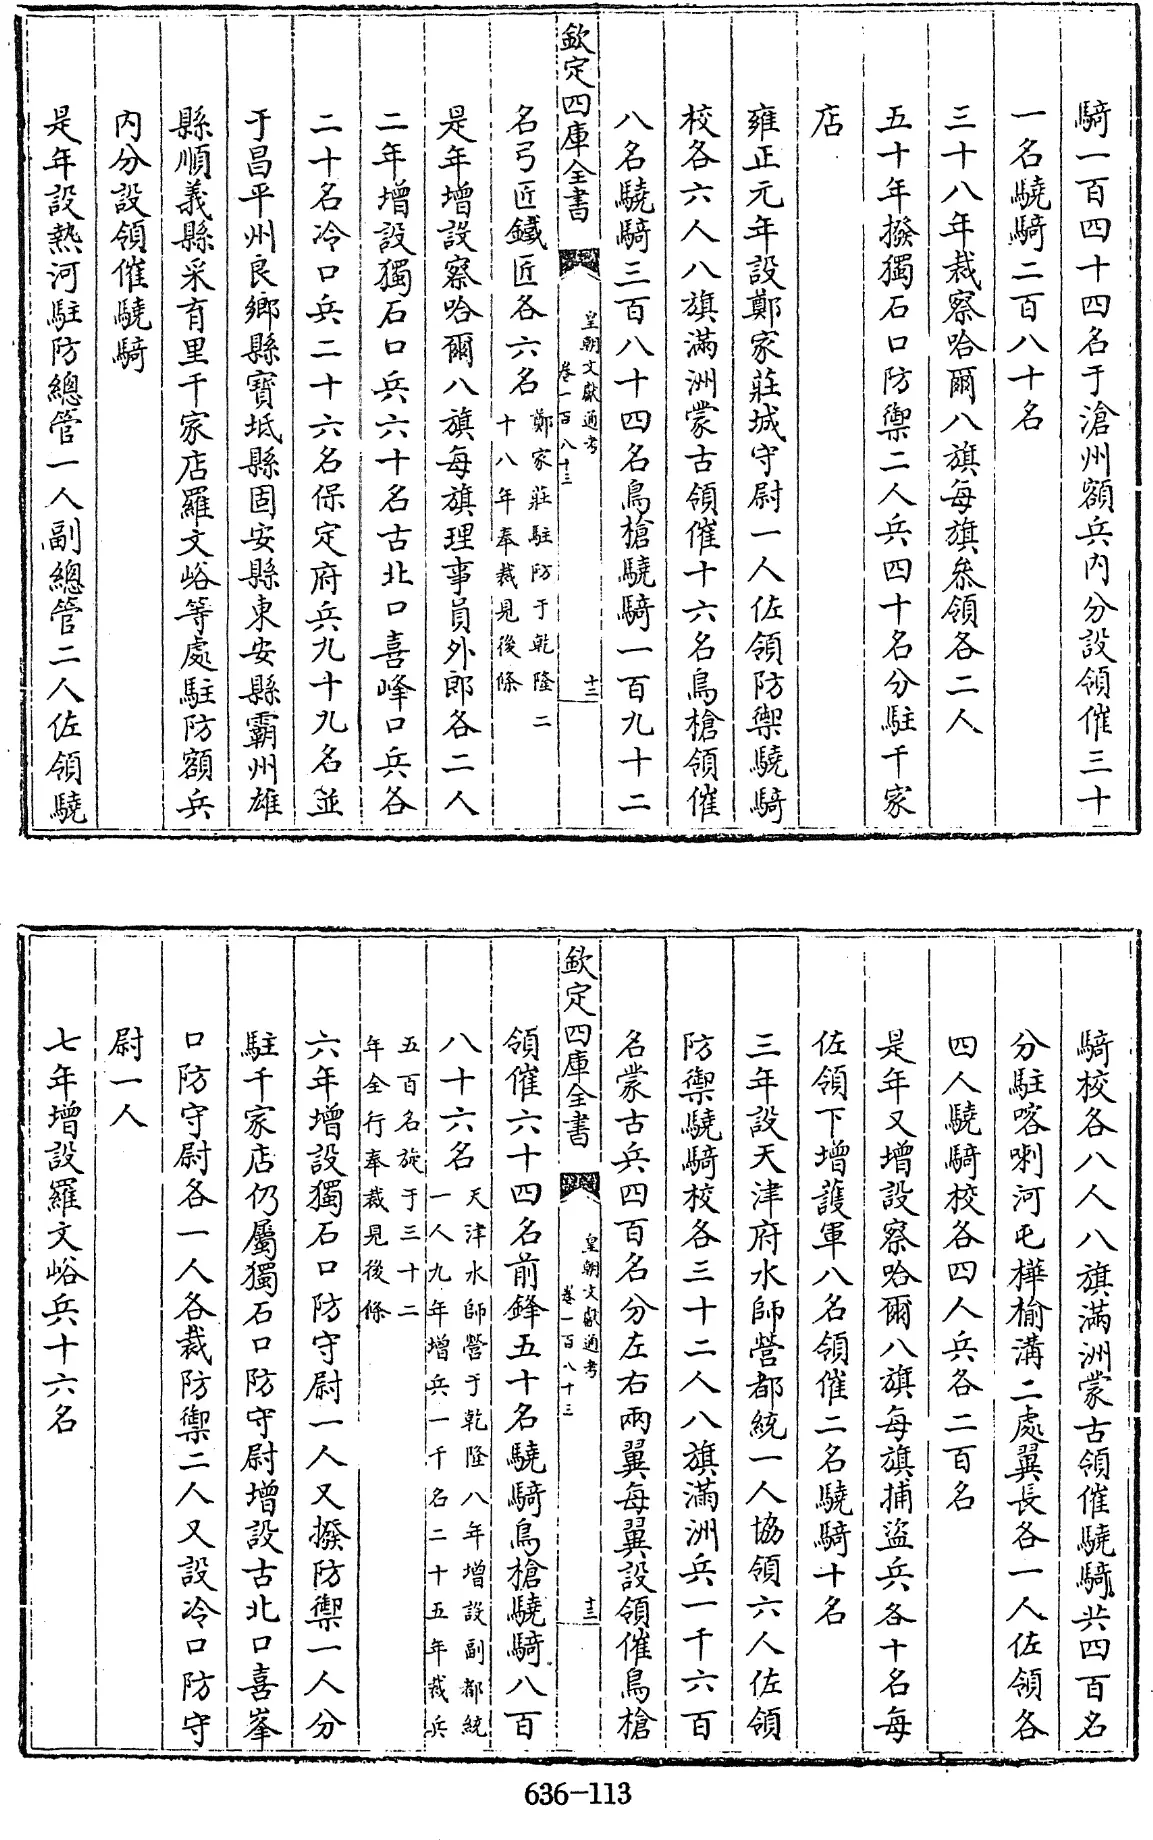 騎一百四十四名于滄州額兵内分設領催三十
一名驍騎二百八十名
三十八年裁察哈爾八旗每旗叅領各二人
五十年撥獨石口防禦二人兵四十名分駐千家
店
雍正元年設鄭家莊城守尉一人佐領防禦驍騎
校各六人八旗滿洲蒙古領催十六名鳥槍領催
八名驍騎三百八十四名鳥槍驍騎一百九十二
欽定四庫全書
皇朝文獻通考
卷一百八十三
十二
名弓匠鐵匠各六名
鄭家莊駐防于乾隆二
十八年奉裁見後條
是年增設察哈爾八旗每旗理事員外郎各二人
二年增設獨石口兵六十名古北口喜峰口兵各
二十名冷口兵二十六名保定府兵九十九名並
于昌平州良鄉縣寶坻縣固安縣東安縣霸州雄
縣順義縣采育里千家店羅文峪等處駐防額兵
内分設領催驍騎
是年設熱河駐防總管一人副總管二人佐領驍
騎校各八人八旗滿洲蒙古領催驍騎共四百名
分駐喀喇河屯樺榆溝二處翼長各一人佐領各
四人驍騎校各四人兵各二百名
是年又增設察哈爾八旗每旗捕盜兵各十名每
佐領下增護軍八名領催二名驍騎十名
三年設天津府水師營都統一人協領六人佐領
防禦驍騎校各三十二人八旗滿洲兵一千六百
名蒙古兵四百名分左右兩翼每翼設領催鳥槍
欽定四庫全書
皇朝文獻通考
卷一百八十三
十三
領催六十四名前鋒五十名驍騎鳥槍驍騎八百
八十六名
天津水師營于乾隆八年增設副都統
一人九年增兵一千名二十五年裁兵
五百名旋于三十二
年全行奉裁見後條
六年增設獨石口防守尉一人又撥防禦一人分
駐千家店仍屬獨石口防守尉增設古北口喜峯
口防守尉各一人各裁防禦二人又設冷口防守
尉一人
七年增設羅文峪兵十六名
636-113